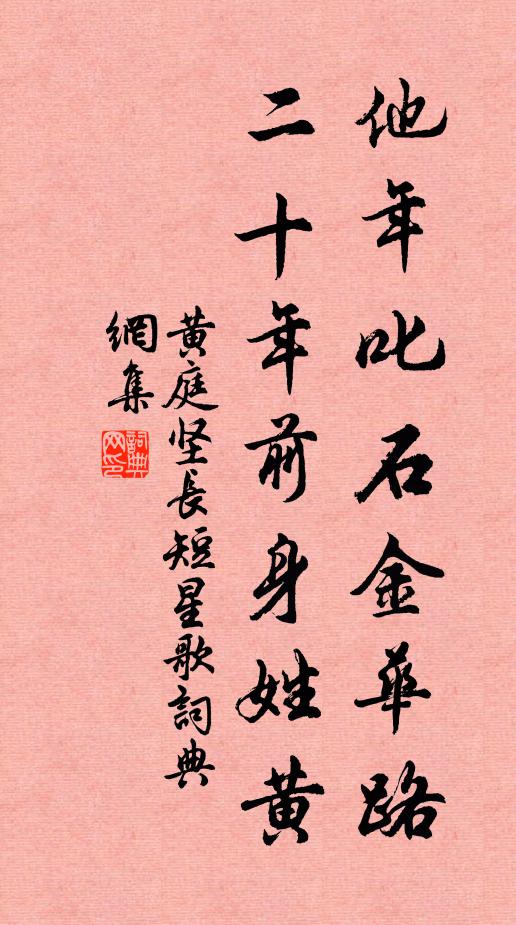 他年叱石金華路
二十年前身姓黄
黄庭坚長短星歌詞典
網集
詞典网印